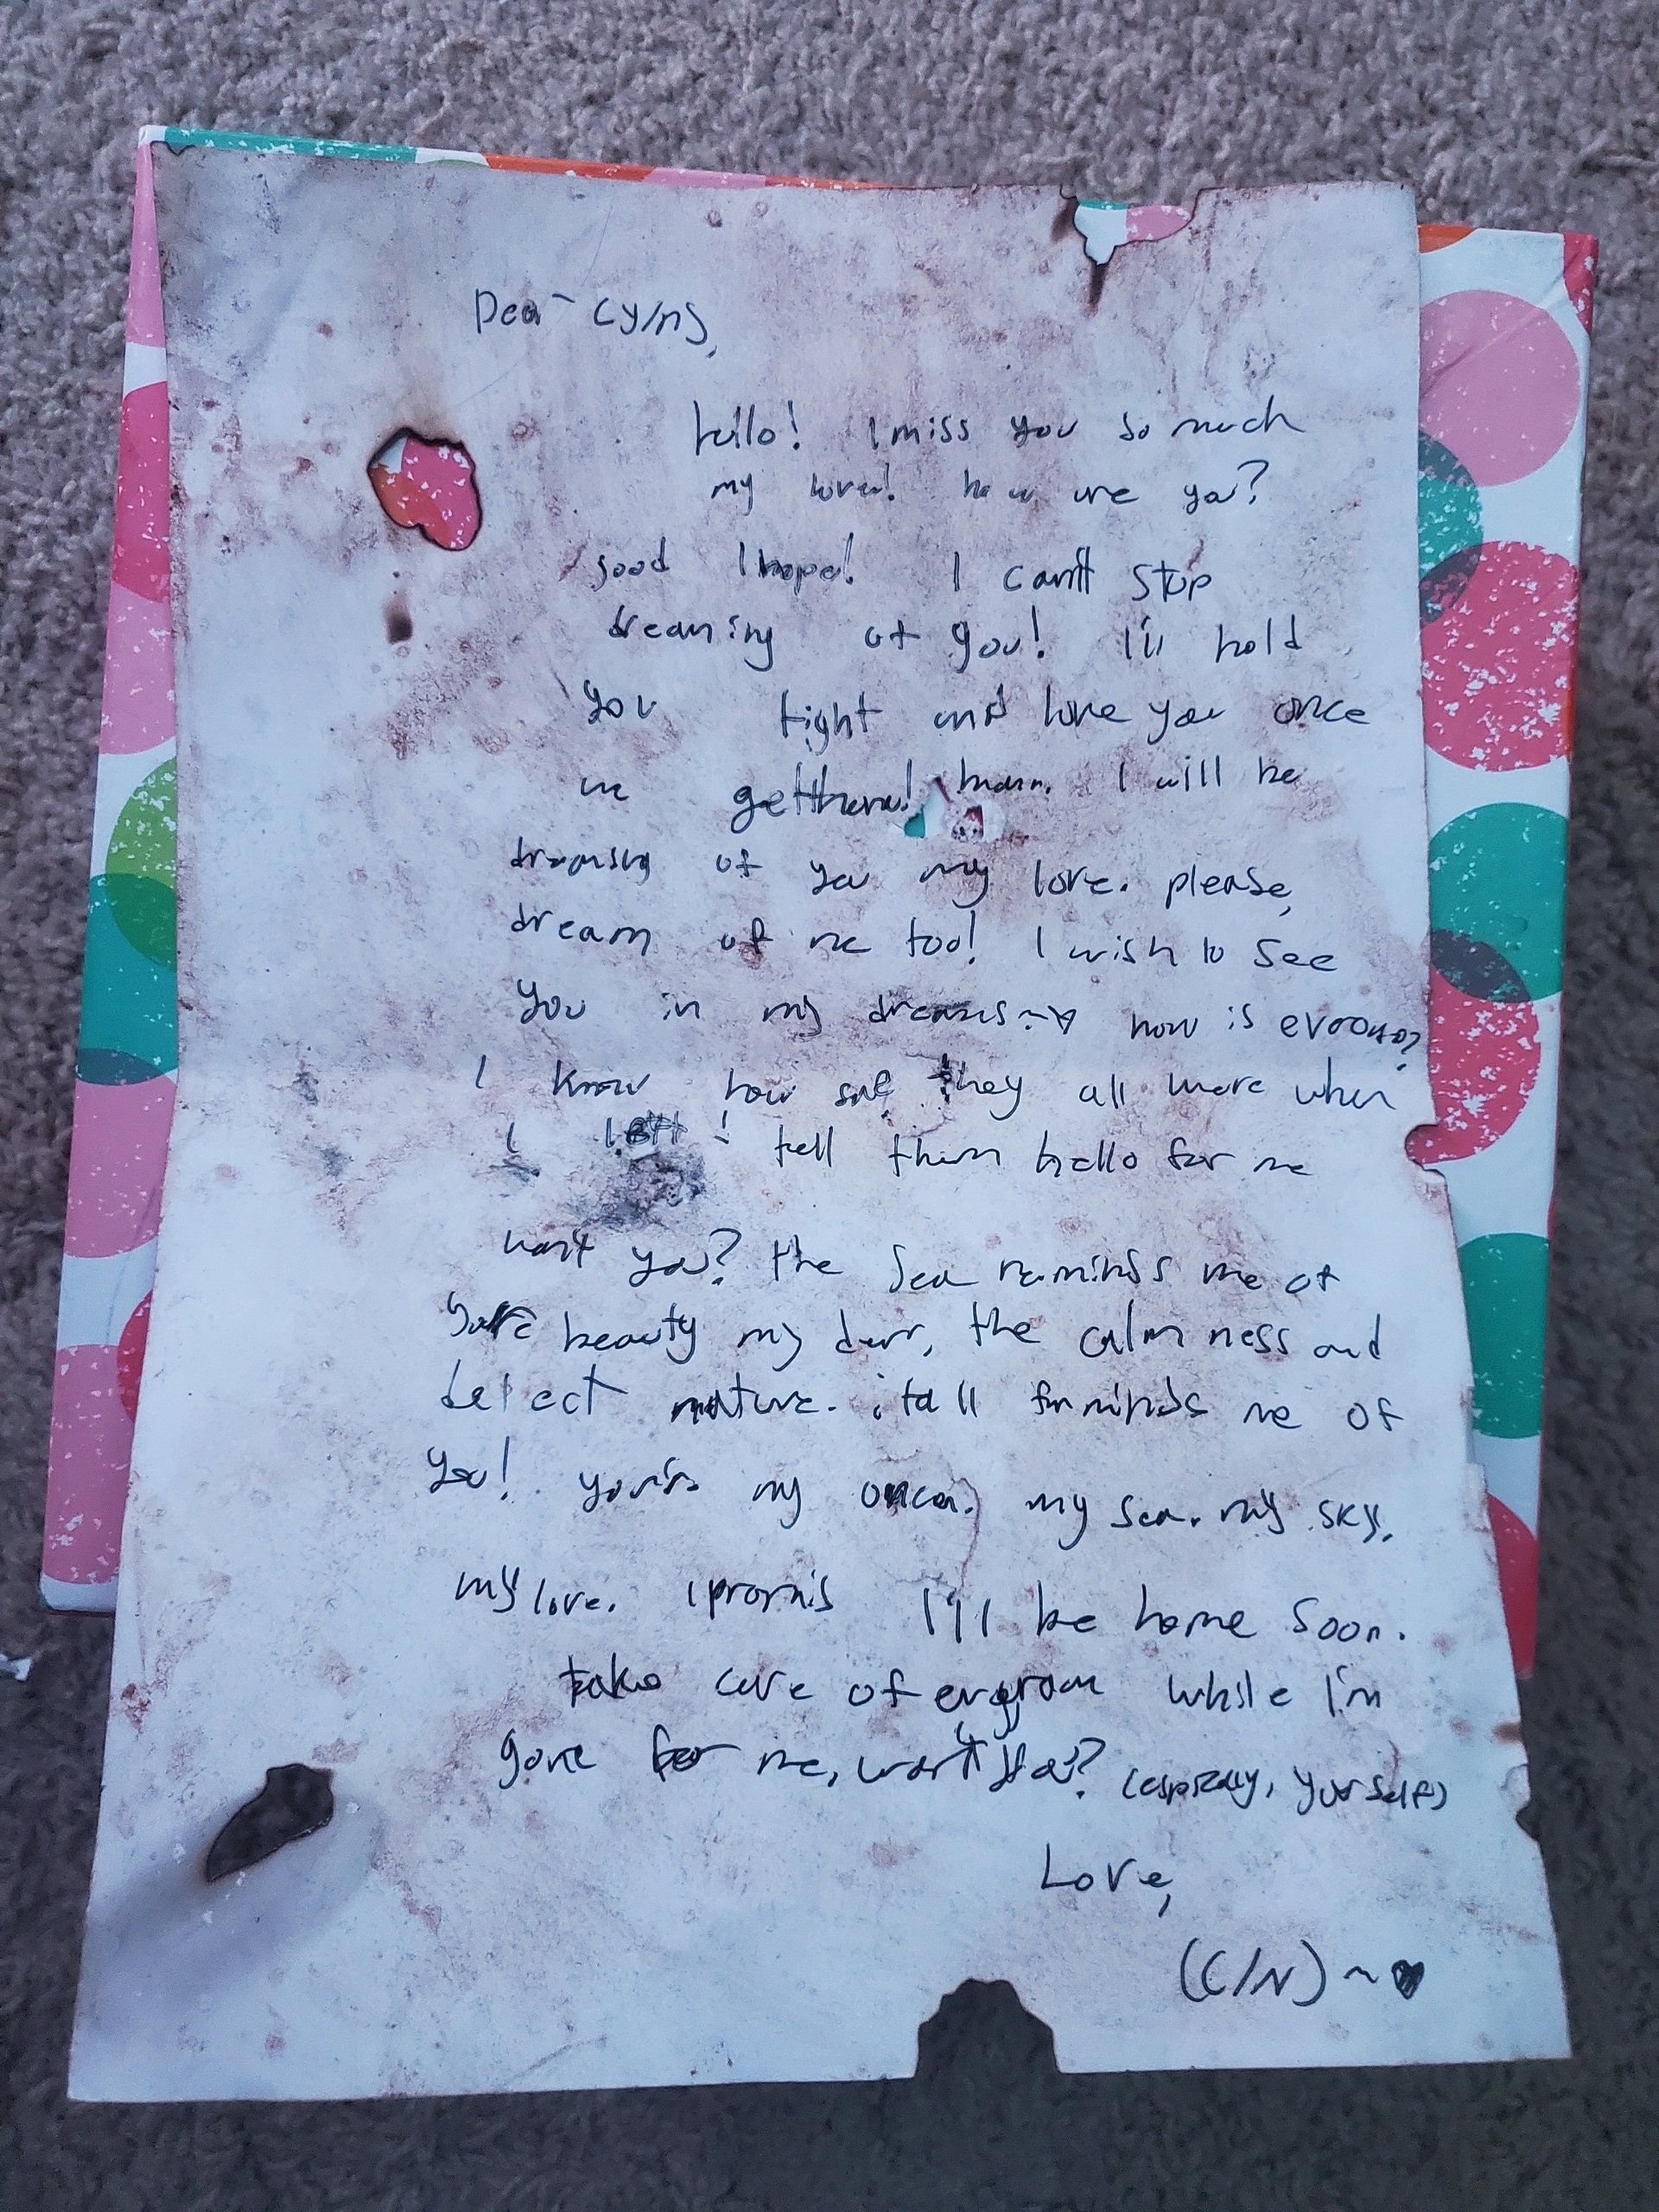 Dear Cyrus,
hello! I miss you so much
my love! how are you?
good I hope! I can't stop
dreaming of you! I'll hold
you tight and love you once
we I will be
of you my love. please,
dream of me too! I wish to see
you in my dreams how is
I know how they all were when
I left! tell them hello for me
won't you? the sea reminds me of
beauty my dear, the calmness and
delect nature. it all me of
you! my my sea. my sky.
my love. I promis I'll be home soon.
take care of while I'm
gone for me, won't you? yourself)
Love,
(C/N) ~ ♥